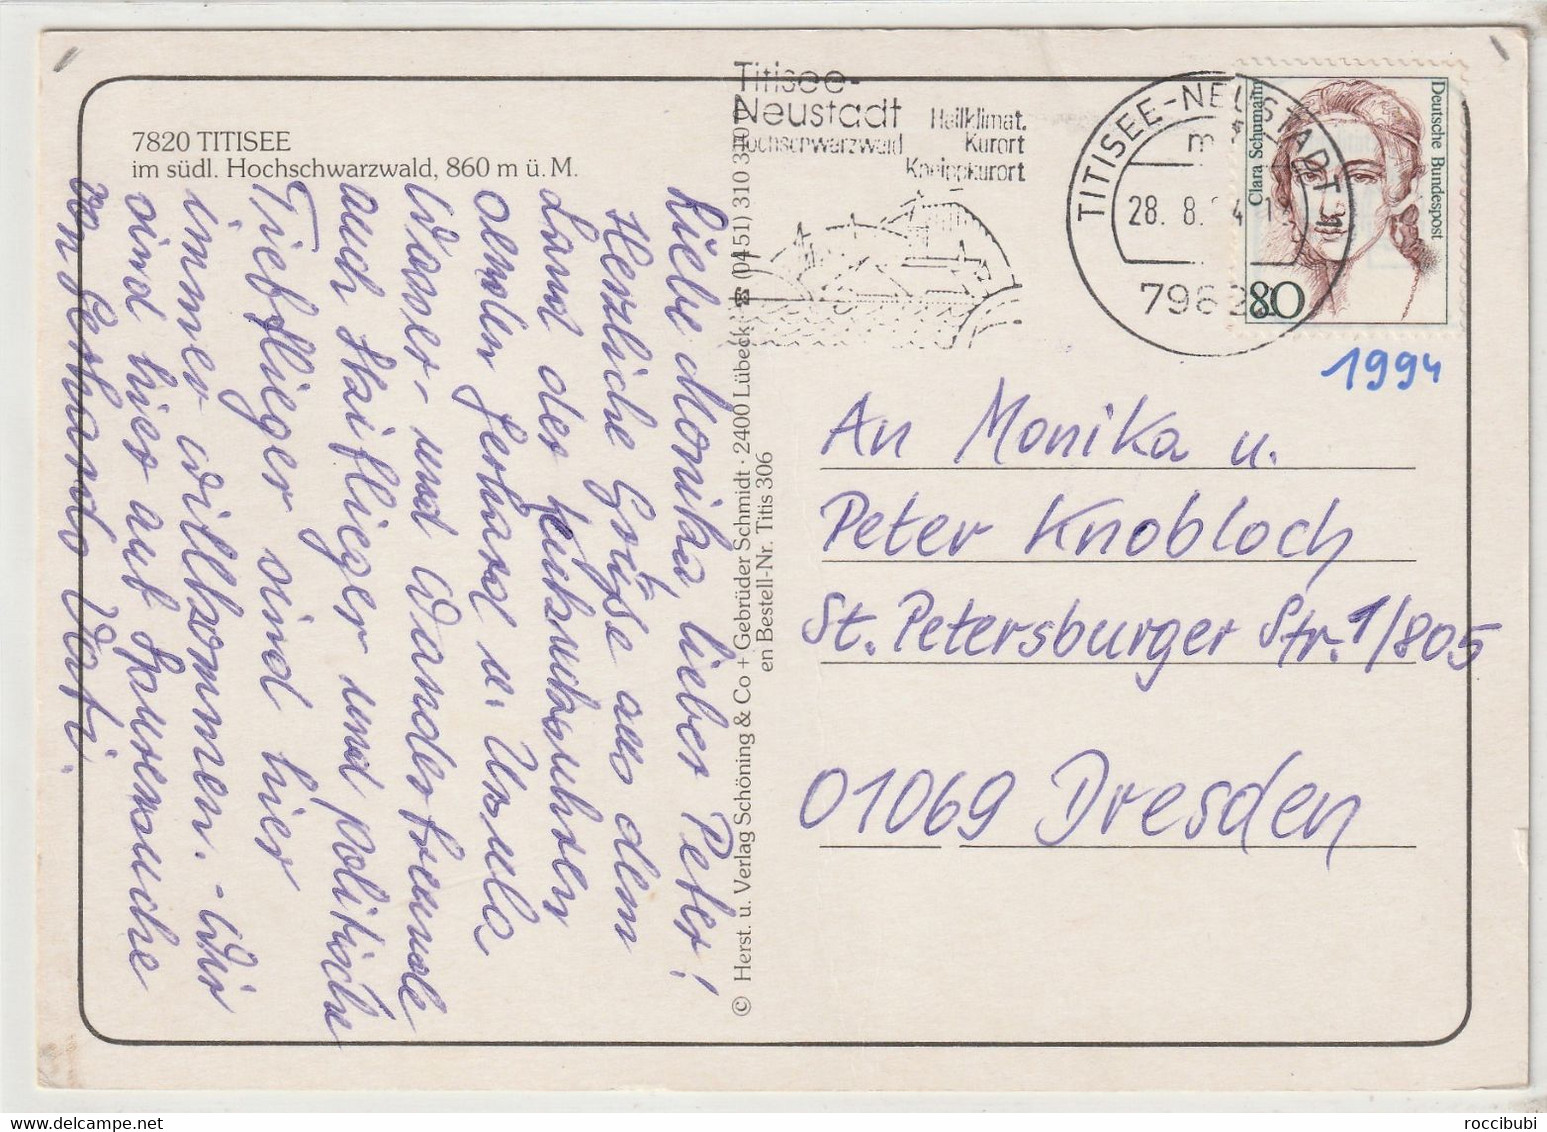 7820 TITISEE
im südl. Hochschwarzwald, 860 m ü. M.
Liebe Monika, lieber Peter!
Herzliche Grüße aus dem
Land der Kuckucksuhren
senden Gerhard u. Ursula
Wasser- und Wanderfreunde
auch Skiflieger und politische
Tiefflieger sind hier
immer willkommen. - Wir
sind hier auf Spurensuche
von Gerhards Vati.
© Herst. u. Verlag Schöning & Co + Gebrüder Schmidt · 2400 Lübeck · ☎ (0451) 310 3
en Bestell-Nr. Titis 306
Titisee-
Neustadt
Hochschwarzwald
Heilklimat.
Kurort
Kneippkurort
TITISEE-NEUSTADT 1
28. 8.
Clara Schumann
Deutsche Bundespost
80
1994
An Monika u.
Peter Knobloch
St. Petersburger Str. 1/805
01069 Dresden
roccibubi